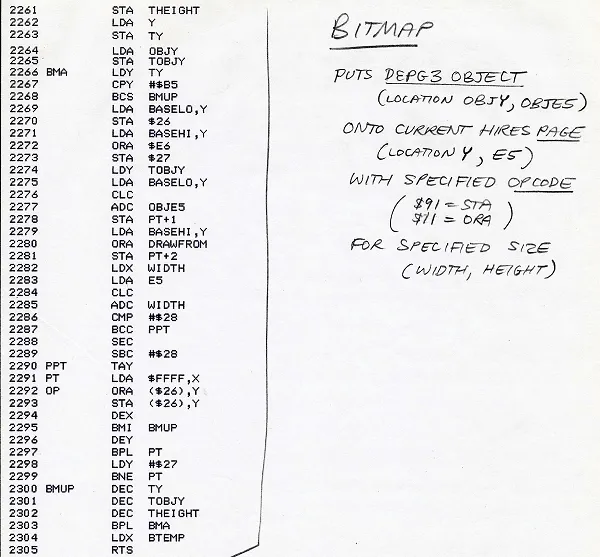 2261 STA THEIGHT
2262 LDA Y
2263 STA TY
2264 LDA OBJY
2265 STA TOBJY
2266 BMA LDY TY
2267 CPY #$B5
2268 BCS BMUP
2269 LDA BASELO,Y
2270 STA $26
2271 LDA BASEHI,Y
2272 ORA $E6
2273 STA $27
2274 LDY TOBJY
2275 LDA BASELO,Y
2276 CLC
2277 ADC OBJE5
2278 STA PT+1
2279 LDA BASEHI,Y
2280 ORA DRAWFROM
2281 STA PT+2
2282 LDX WIDTH
2283 LDA E5
2284 CLC
2285 ADC WIDTH
2286 CMP #$28
2287 BCC PPT
2288 SEC
2289 SBC #$28
2290 PPT TAY
2291 PT LDA $FFFF,X
2292 OP ORA ($26),Y
2293 STA ($26),Y
2294 DEX
2295 BMI BMUP
2296 DEY
2297 BPL PT
2298 LDY #$27
2299 BNE PT
2300 BMUP DEC TY
2301 DEC TOBJY
2302 DEC THEIGHT
2303 BPL BMA
2304 LDX BTEMP
2305 RTS
BITMAP
PUTS DEPG3 OBJECT
(LOCATION OBJY, OBJE5)
ONTO CURRENT HIRES PAGE
(LOCATION Y, E5)
WITH SPECIFIED OPCODE
($91 = STA
$11 = ORA)
FOR SPECIFIED SIZE
(WIDTH, HEIGHT)